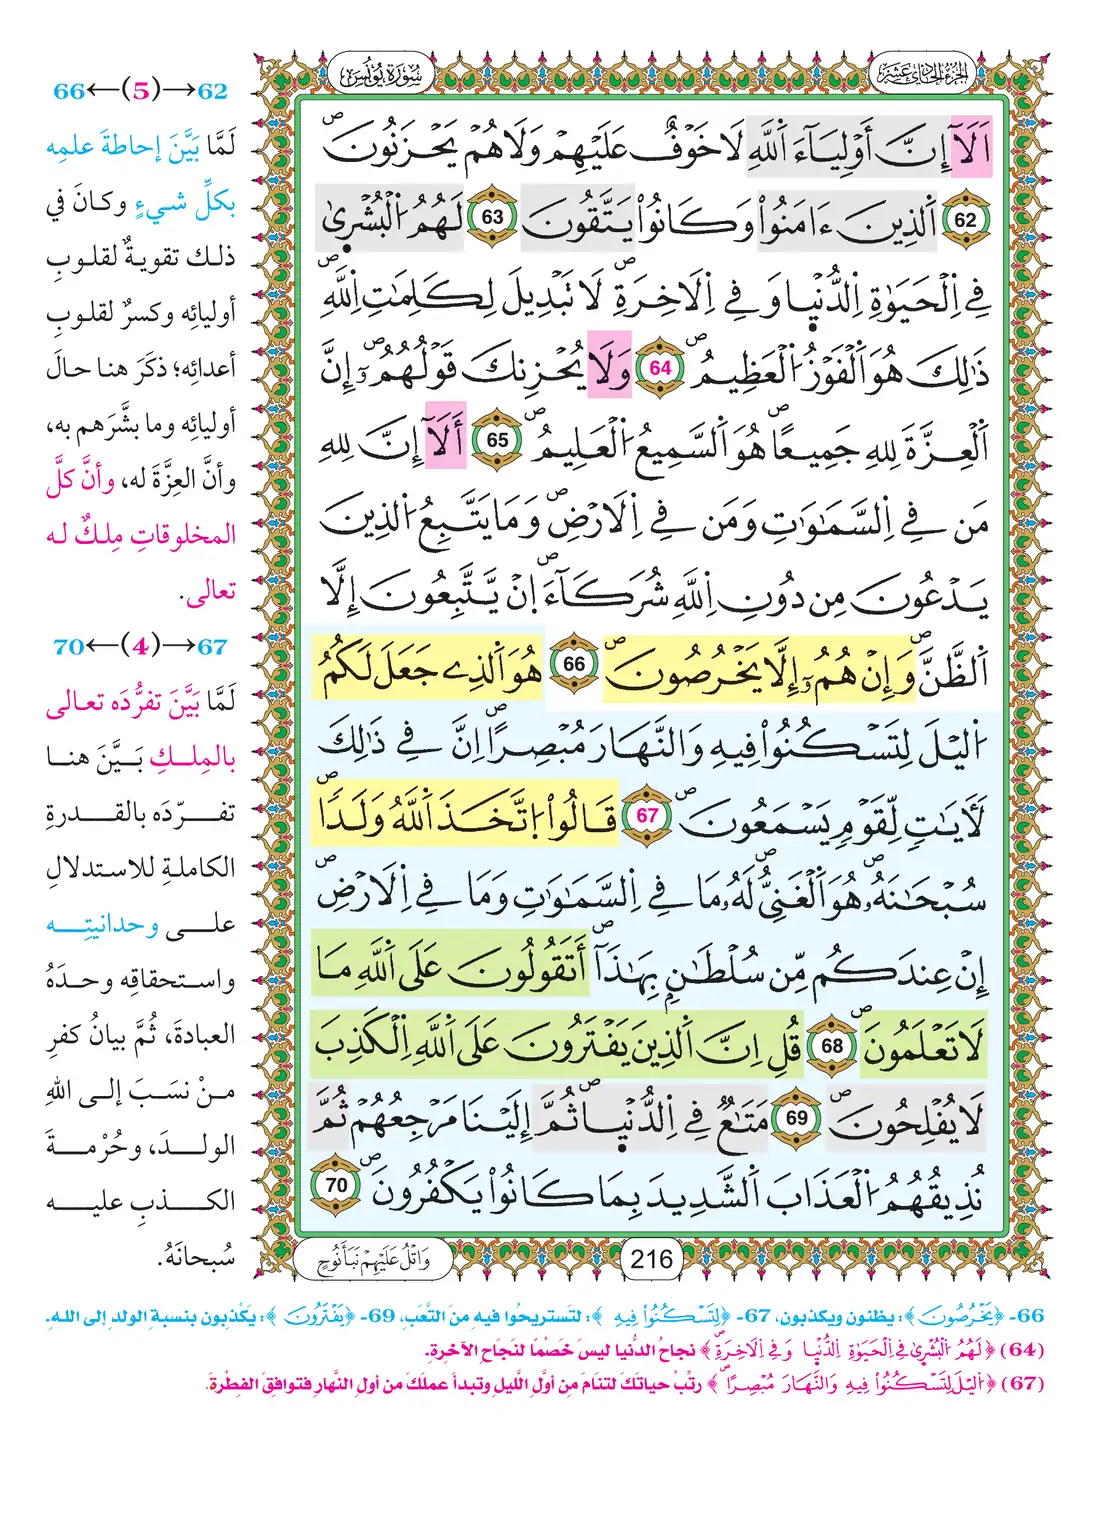 الجزء الحادي عشر
سورة يونس
اَلَآ إِنَّ أَوْلِيَآءَ اَ۬للَّهِ لَا خَوْفٌ عَلَيْهِمْ وَلَا هُمْ يَحْزَنُونَۖ
62 اَ۬لذِينَ ءَامَنُواْ وَكَانُواْ يَتَّقُونَ 63 لَهُمُ اُ۬لْبُشْر۪يٰ
فِے اِ۬لْحَيَوٰةِ اِ۬لدُّنْي۪ا وَفِے اِ۬لَاخِرَةِۖ لَا تَبْدِيلَ لِكَلِمَٰتِ اِ۬للَّهِۖ
ذَٰلِكَ هُوَ اَ۬لْفَوْزُ اُ۬لْعَظِيمُۖ 64 وَلَا يُحْزِنكَ قَوْلُهُمُۥٓۖ إِنَّ
اَ۬لْعِزَّةَ لِلهِ جَمِيعاًۖ هُوَ اَ۬لسَّمِيعُ اُ۬لْعَلِيمُۖ 65 أَلَآ إِنَّ لِلهِ
مَن فِے اِ۬لسَّمَٰوَٰتِ وَمَن فِے اِ۬لَارْضِۖ وَمَا يَتَّبِعُ اُ۬لذِينَ
يَدْعُونَ مِن دُونِ اِ۬للَّهِ شُرَكَآءَۖ انْ يَّتَّبِعُونَ إِلَّا
اَ۬لظَّنَّۖ وَإِنْ هُمُۥٓ إِلَّا يَخْرُصُونَۖ 66 هُوَ اَ۬لذِے جَعَلَ لَكُمُ
اُ۬ليْلَ لِتَسْكُنُواْ فِيهِ وَالنَّهَارَ مُبْصِراًۖ اِنَّ فِے ذَٰلِكَ
لَأٓيَٰتٍ لِّقَوْمٍ يَسْمَعُونَۖ 67 قَالُواْ اُ۪تَّخَذَ اَ۬للَّهُ وَلَداًۖ
سُبْحَٰنَهُۥۖ هُوَ اَ۬لْغَنِيُّۖ لَهُۥ مَا فِے اِ۬لسَّمَٰوَٰتِ وَمَا فِے اِ۬لَارْضِۖ
إِنْ عِندَكُم مِّن سُلْطَٰنٍ بِهَٰذَآۖ أَتَقُولُونَ عَلَى اَ۬للَّهِ مَا
لَا تَعْلَمُونَۖ 68 قُلِ اِنَّ اَ۬لذِينَ يَفْتَرُونَ عَلَى اَ۬للَّهِ اِ۬لْكَذِبَ
لَا يُفْلِحُونَۖ 69 مَتَٰعٌ فِے اِ۬لدُّنْي۪اۖ ثُمَّ إِلَيْنَا مَرْجِعُهُمْ ثُمَّ
نُذِيقُهُمُ اُ۬لْعَذَابَ اَ۬لشَّدِيدَ بِمَا كَانُواْ يَكْفُرُونَۖ 70
216
وَاتْلُ عَلَيْهِمْ نَبَأَ نُوحٍ
62→(5)←66
لَمَّا بَيَّنَ إحاطةَ علمِه
بكلِّ شيءٍ وكانَ في
ذلك تقويةٌ لقلوبِ
أوليائِه وكسرٌ لقلوبِ
أعدائِه؛ ذكَرَ هنا حالَ
أوليائِه وما بشَّرَهم به،
وأنَّ العِزَّةَ له، وأنَّ كلَّ
المخلوقاتِ مِلكٌ له
تعالى.
67→(4)←70
لَمَّا بَيَّنَ تفرُّدَه تعالى
بالمِلكِ بَيَّنَ هنا
تفرّدَه بالقدرةِ
الكاملةِ للاستدلالِ
على وحدانيتِه
واستحقاقِه وحدَهُ
العبادةَ، ثُمَّ بيانُ كفرِ
منْ نسَبَ إلى اللهِ
الولدَ، وحُرْمةَ
الكذبِ عليه
سُبحانَهُ.
66- ﴿يَخْرُصُونَ﴾: يظنون ويكذبون، 67- ﴿لِتَسْكُنُواْ فِيهِ﴾: لتستريحُوا فيه منَ التَّعَبِ، 69- ﴿يَفْتَرُونَ﴾: يكْذِبون بنسبةِ الولدِ إلى اللهِ.
(64) ﴿لَهُمُ اُ۬لْبُشْر۪يٰ فِے اِ۬لْحَيَوٰةِ اِ۬لدُّنْي۪ا وَفِے اِ۬لَاخِرَةِۖ﴾ نجاحُ الدُّنيا ليسَ خَصْمًا لنَجَاحِ الآخرةِ.
(67) ﴿اُ۬ليْلَ لِتَسْكُنُواْ فِيهِ وَالنَّهَارَ مُبْصِراًۖ﴾ رتِّبْ حياتَكَ لتنَامَ مِن أوَّلِ اللَّيلِ وتبدأَ عملَكَ من أولِ النَّهارِ فتوافقَ الفطْرةَ.